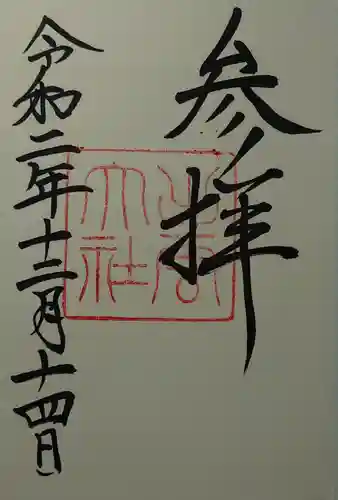 参拝
出雲大社
令和二年十二月十四日